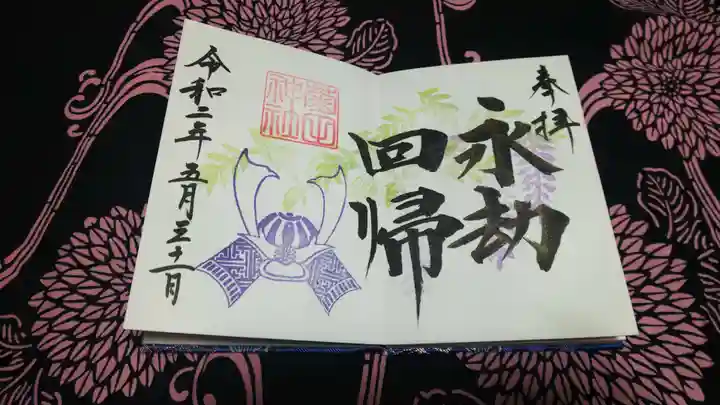 奉拝
永劫
回帰
神社
令和二年 五月三十一日